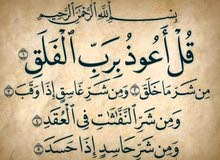 بِسْمِ اللَّهِ الرَّحْمَٰنِ الرَّحِيمِ
قُلْ أَعُوذُ بِرَبِّ الْفَلَقِ ١
مِن شَرِّ مَا خَلَقَ ٢ وَمِن شَرِّ غَاسِقٍ إِذَا وَقَبَ ٣
وَمِن شَرِّ النَّفَّٰثَٰتِ فِي الْعُقَدِ ٤
وَمِن شَرِّ حَاسِدٍ إِذَا حَسَدَ ٥